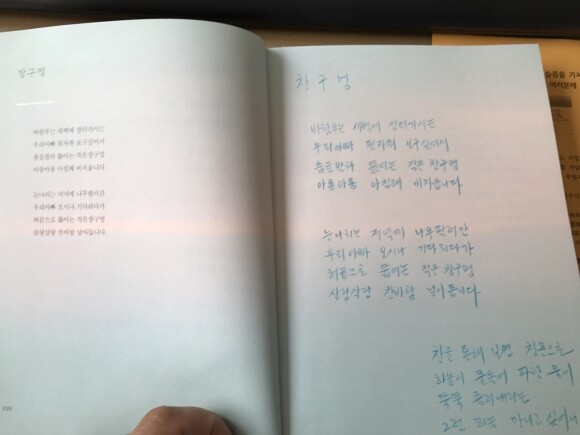 창구멍
바람부는 새벽에 장터가시는
우리아빠 뒷자취 보구싶어서
뚫어논 작은창구멍
아롱아롱 아침해 비치옵니다.
눈나리는 저녁에 나무팔러간
우리아빠 오시나 기다리다가
혀끝으로 뚫어논 작은창구멍
살랑살랑 찬바람 날아듭니다.
020
창구멍
바람부는 새벽에 장터가시는
우리아빠 뒷자취 보구싶어서
뚫어논 작은 창구멍
아롱아롱 아침해 비치옵니다
눈나리는 저녁에 나무팔러간
우리아빠 오시나 기다리다가
혀끝으로 뚫어논 작은 창구멍
살랑살랑 찬바람 날아듭니다
창을 통해 보면 창문으로
하늘이 물들어 파란 물이
뚝뚝 흘러내리는
그런 하늘 만나고 싶어
슬픔을 가지
여러분께